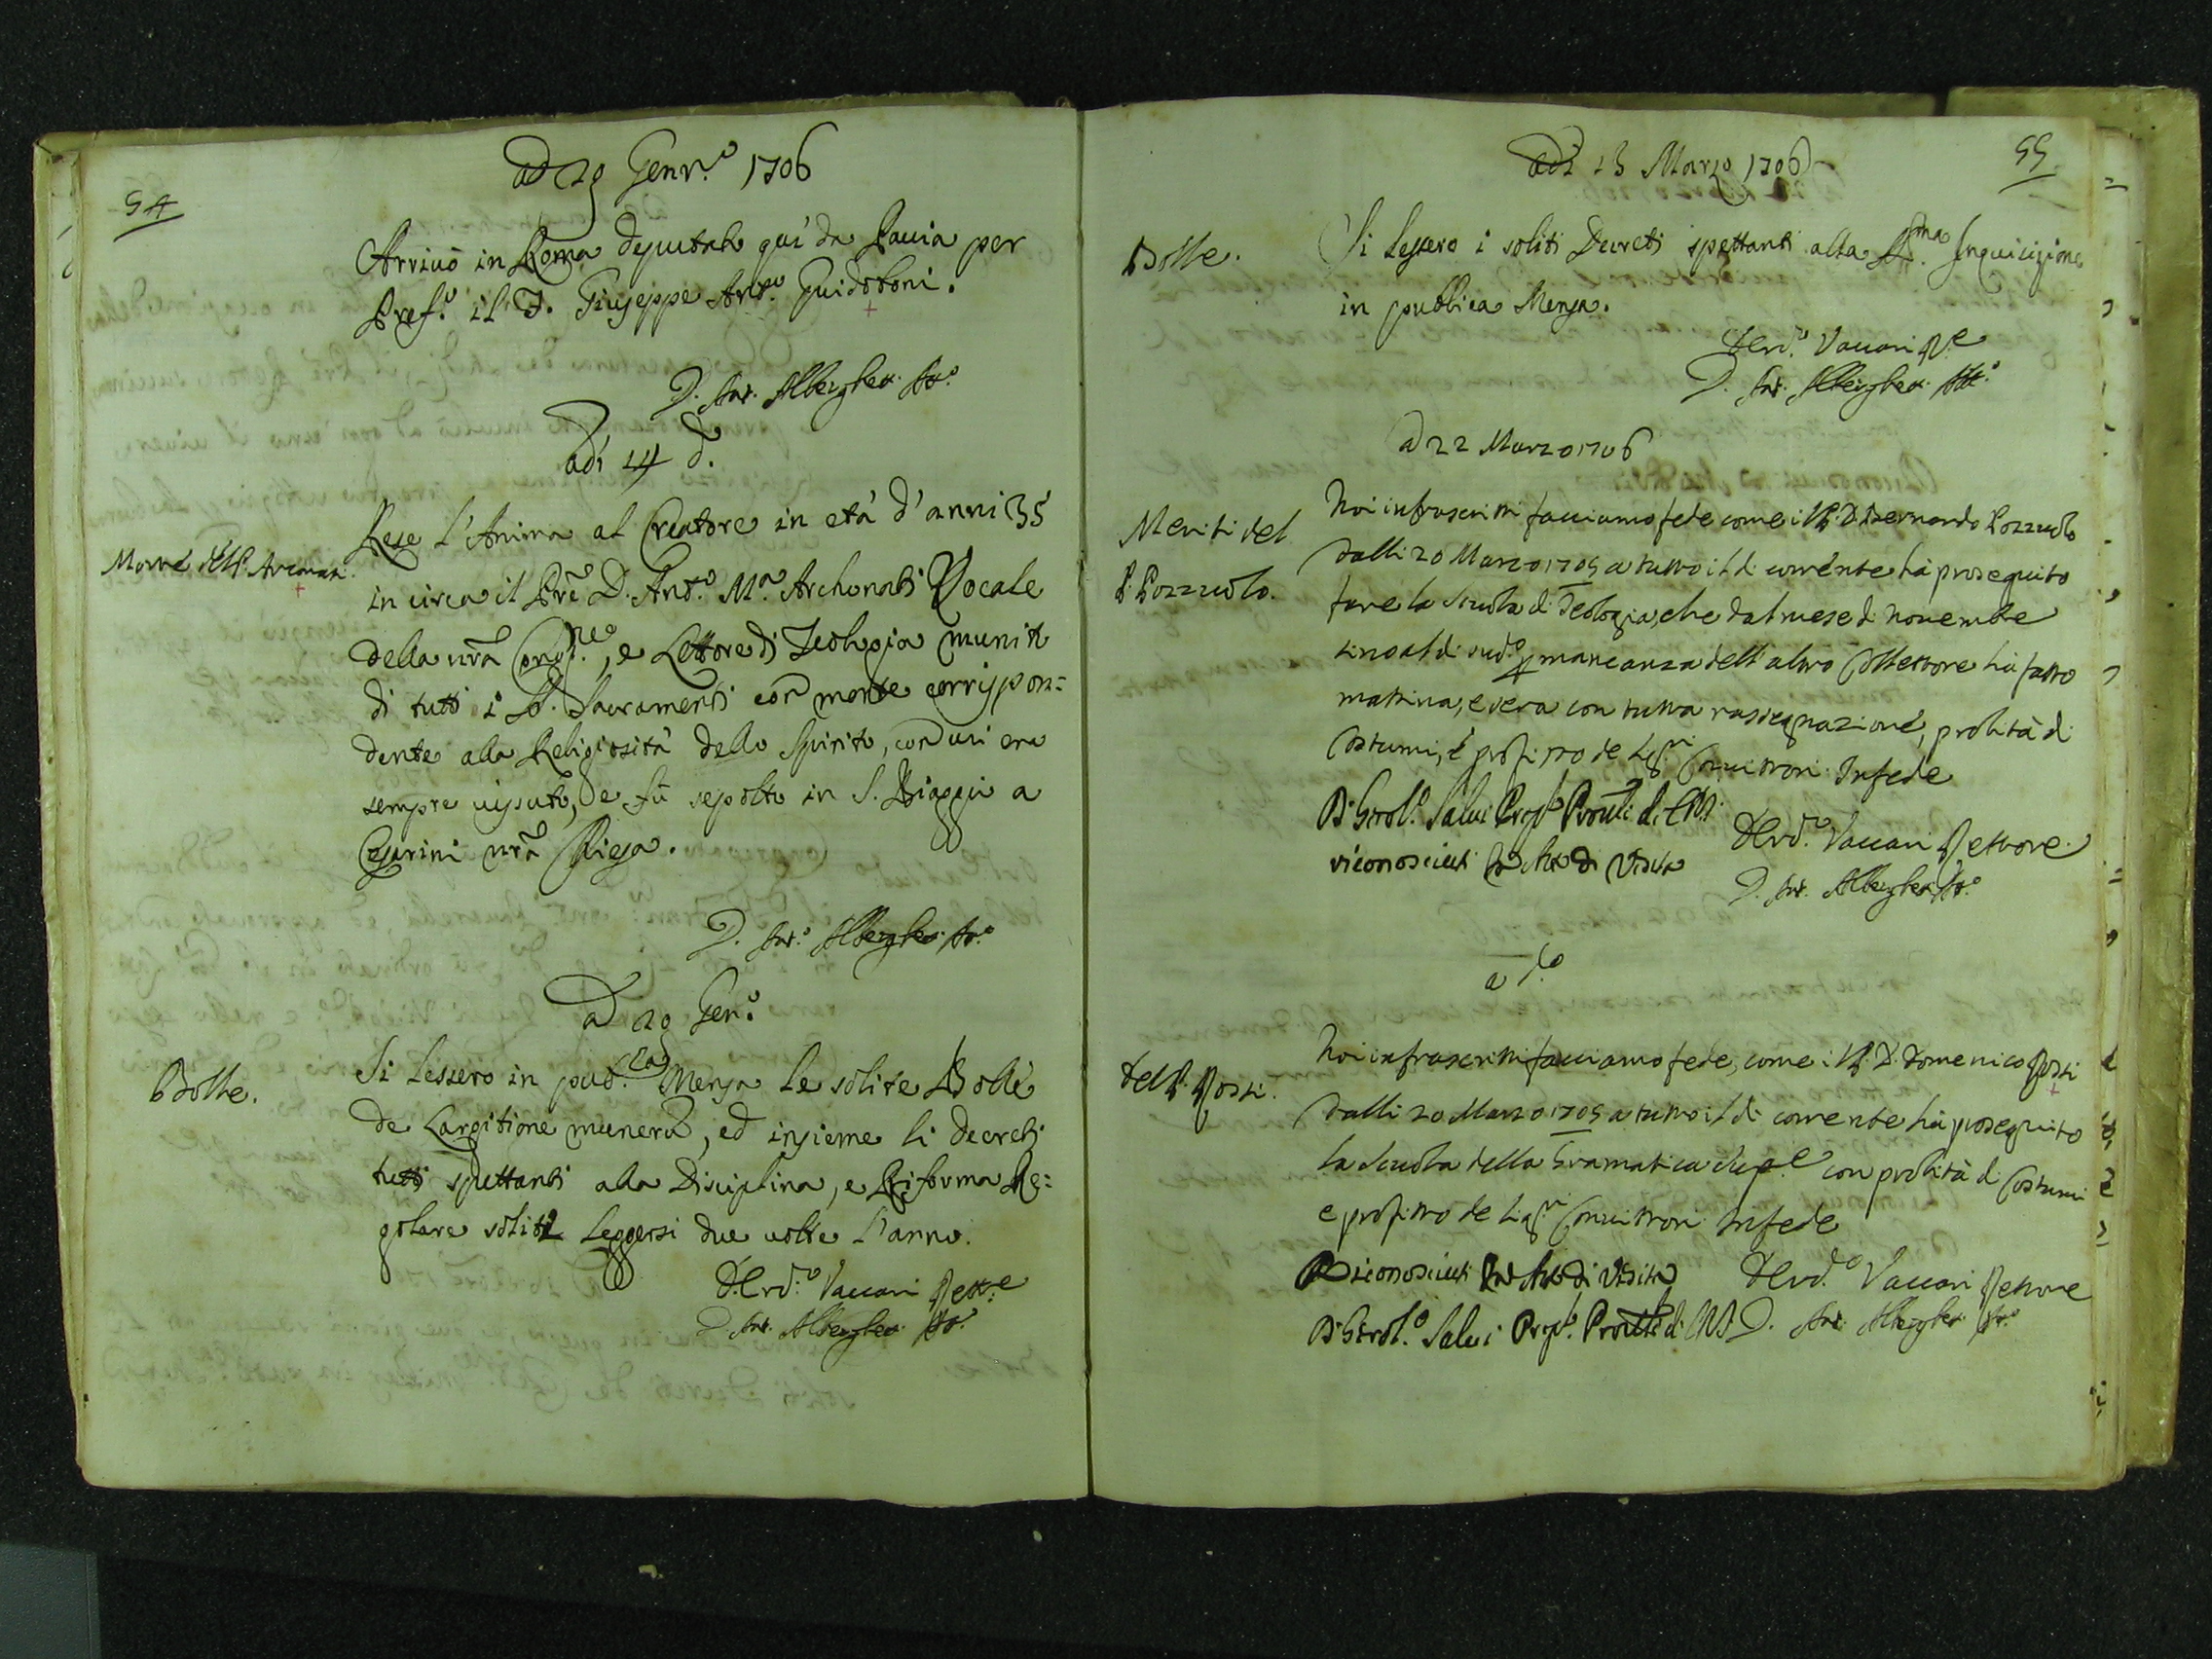 54
ad 29 Genr.º 1706
Arriuò in Roma deputato qui da Pauia per
Pref.º il F. Giuseppe Ant.º Guidoboni.
D. Ant. Albergher. Att.º
adi 14 d.
Morte del P. Arconati.
Rese l'Anima al Creatore in età d'anni 35
in circa il Prē D. Ant.º M.ª Archonati Vocale
della nrā Cong.ne, e Lettore di Teologia munito
di tutti i SS. Sacramenti con morte corrispon=
dente alla Religiosità dello Spirito, con cui era
sempre uisuto, e fù sepolto in S. Biaggio a
Cesarini nrā Chiesa.
D. Ant.º Albergher. Att.º
ad 29 Gen.º
Bolle.
Si lessero in pub.ca Mensa le solite Bolle
de Largitione munerū, ed insieme li decreti
tutti spettanti alla Disciplina, e Riforma Re:
golare soliti leggersi due uolte l'anno.
Vaccari Rett.e
D. Ant. Albergher. Att.º
55
adi 13 Marzo 1706
Bolle.
Si lessero i soliti Decreti spettanti alla S.ma Inquisizione
in pubblica Mensa.
Vaccari R.e
D. Ant. Albergher. Att.º
a 22 Marzo 1706
Meriti del
P. Pozzuolo.
Noi infrascritti facciamo fede come il P. D. Bernardo Pozzuolo
dalli 20 Marzo 1705 a tutto il dì corrente hà proseguito
fare la scuola di Teologia, che dal mese di Nouembre
sino al dì sud.º p mancanza dell'altro Collettore hà fatto
mattina, e sera con tutta rassegnazione, probità di
costumi, e profitto de Lig.ri Conuittori. In fede
D. Girol.º Salui Prep.to Prouīle di
riconosciuti In Atto di Visita
Vaccari Rettore
D. Ant. Albergher. Att.º
a d.º
Del P. Rosti.
Noi infrascritti facciamo fede, come il P. D. Domenico Rosti
dalli 20 Marzo 1705 a tutto il dì corrente hà proseguito
la Scuola della Gramatica Sup.e con probità di Costumi
e profitto de Lig.ri Conuittori. In fede
Riconosciuti In Atto di Visita
Vaccari Rettore
D. Girol.º Salui Prep.to Prouīle di
D. Ant. Albergher. Att.º